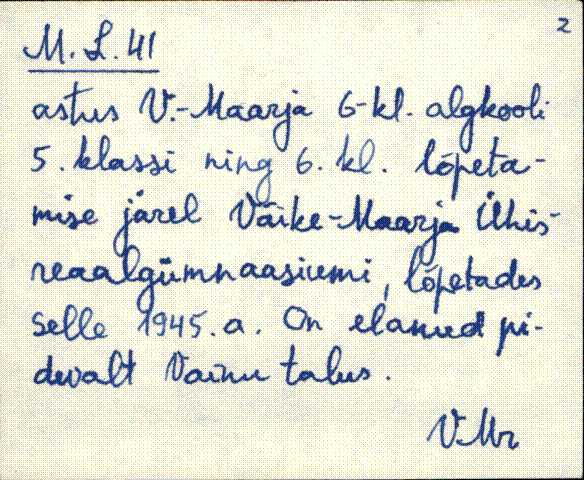 2
M. L. 41
astus V.-Maarja 6-kl. algkooli
5. klassi ning 6. kl. lõpeta-
mise järel Väike-Maarja Ühis-
reaalgümnaasiumi, lõpetades
selle 1945. a. On elanud pi-
devalt Vainu talus.
VMr